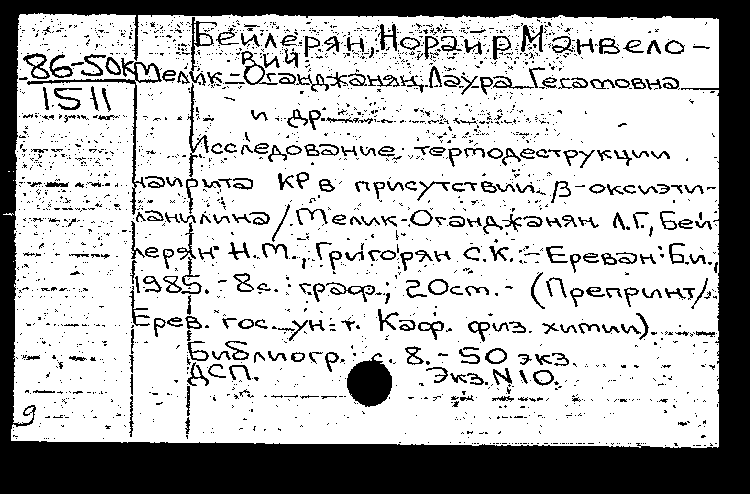 Бейлерян, Норайр Манвело-
вич
86-50к Мелик-Оганджанян, Лаура Гегамовна
1511
и др.
Исследование термодеструкции
наирита КР в присутствии β-оксиэти-
ланилина / Мелик-Оганджанян Л.Г., Бей-
лерян Н.М., Григорян С.К. - Ереван: Б.и.,
1985. - 8с.: граф.; 20см. - (Препринт /
Ерев. гос. ун-т. Каф. физ. химии).
Библиогр.: с. 8. - 50 экз.
ДСП. Экз. N10.
9